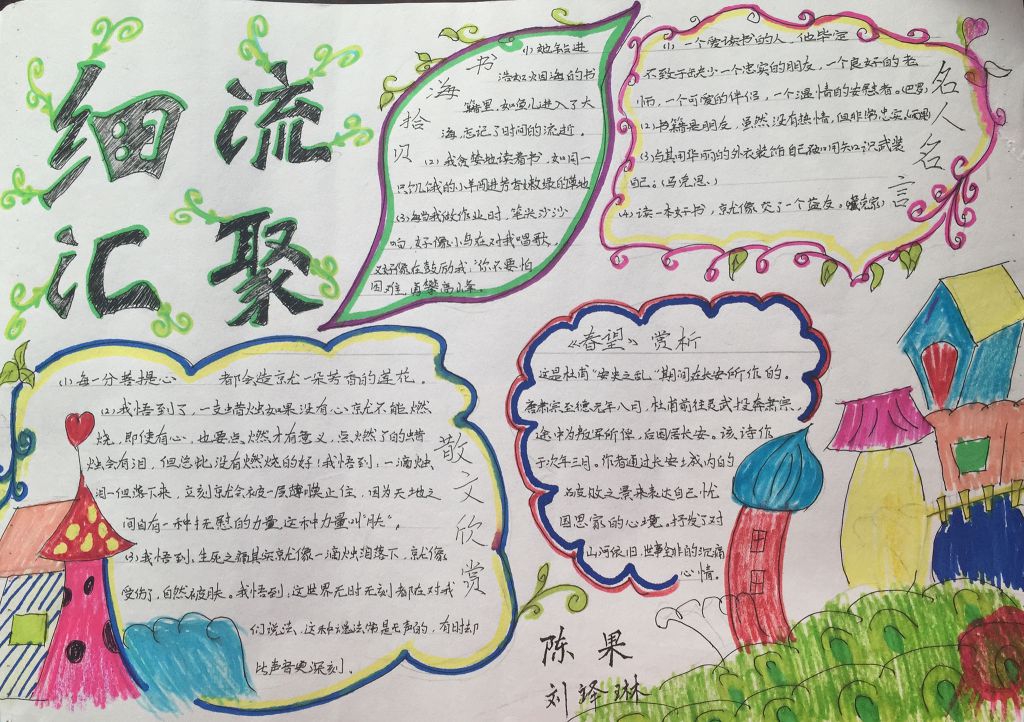 细流
汇聚
书海拾贝
(1)她钻进
浩如烟海的书
籍里,如鱼儿进入了大
海,忘记了时间的流逝。
(2)我贪婪地读着书,如同一
只饥饿的小羊闯进芳香嫩绿的草地
(3)每当我做作业时,笔尖沙沙
响,好像小鸟在对我唱歌,
又好像在鼓励我:“你不要怕
困难,勇攀高峰。
名人名言
(1)一个爱读书的人,他毕定
不致于缺少一个忠实的朋友,一个良好的老
师,一个可爱的伴侣,一个温情的安慰者。
(2)书籍是朋友,虽然没有热情,但非常忠实
(3)与其用华丽的外衣装饰自己,不如用知识武装
自己。(马克思)
(4)读一本好书,就像交了一个益友。
散文欣赏
(1)每一分菩提心 都会造就一朵芳香的莲花。
(2)我悟到了,一支蜡烛如果没有心就不能燃
烧,即使有心,也要点燃才有意义,点燃了的蜡
烛会有泪,但总比没有燃烧的好!我悟到:一滴烛
泪一但落下来,立刻就会被一层薄膜止住,因为天地之
间自有一种抚慰的力量,这种力量叫“肤”。
(3)我悟到,生死之痛其实就像一滴烛泪落下,就像
受伤了,自然被肤。我悟到:这世界无时无刻都在对我
们说法,这种说法常是无声的,有时却
比声音更深刻。
《春望》赏析
这是杜甫“安史之乱”期间在长安所作的。
唐肃宗至德元年八月,杜甫前往灵武投奔肃宗,
途中为叛军所俘,后困居长安。该诗作
于次年三月。作者通过长安城内的
破败之景来表达自己忧
国思家的心境。抒发了对
山河依旧,世事全非的沉痛
心情。
陈果
刘绎琳